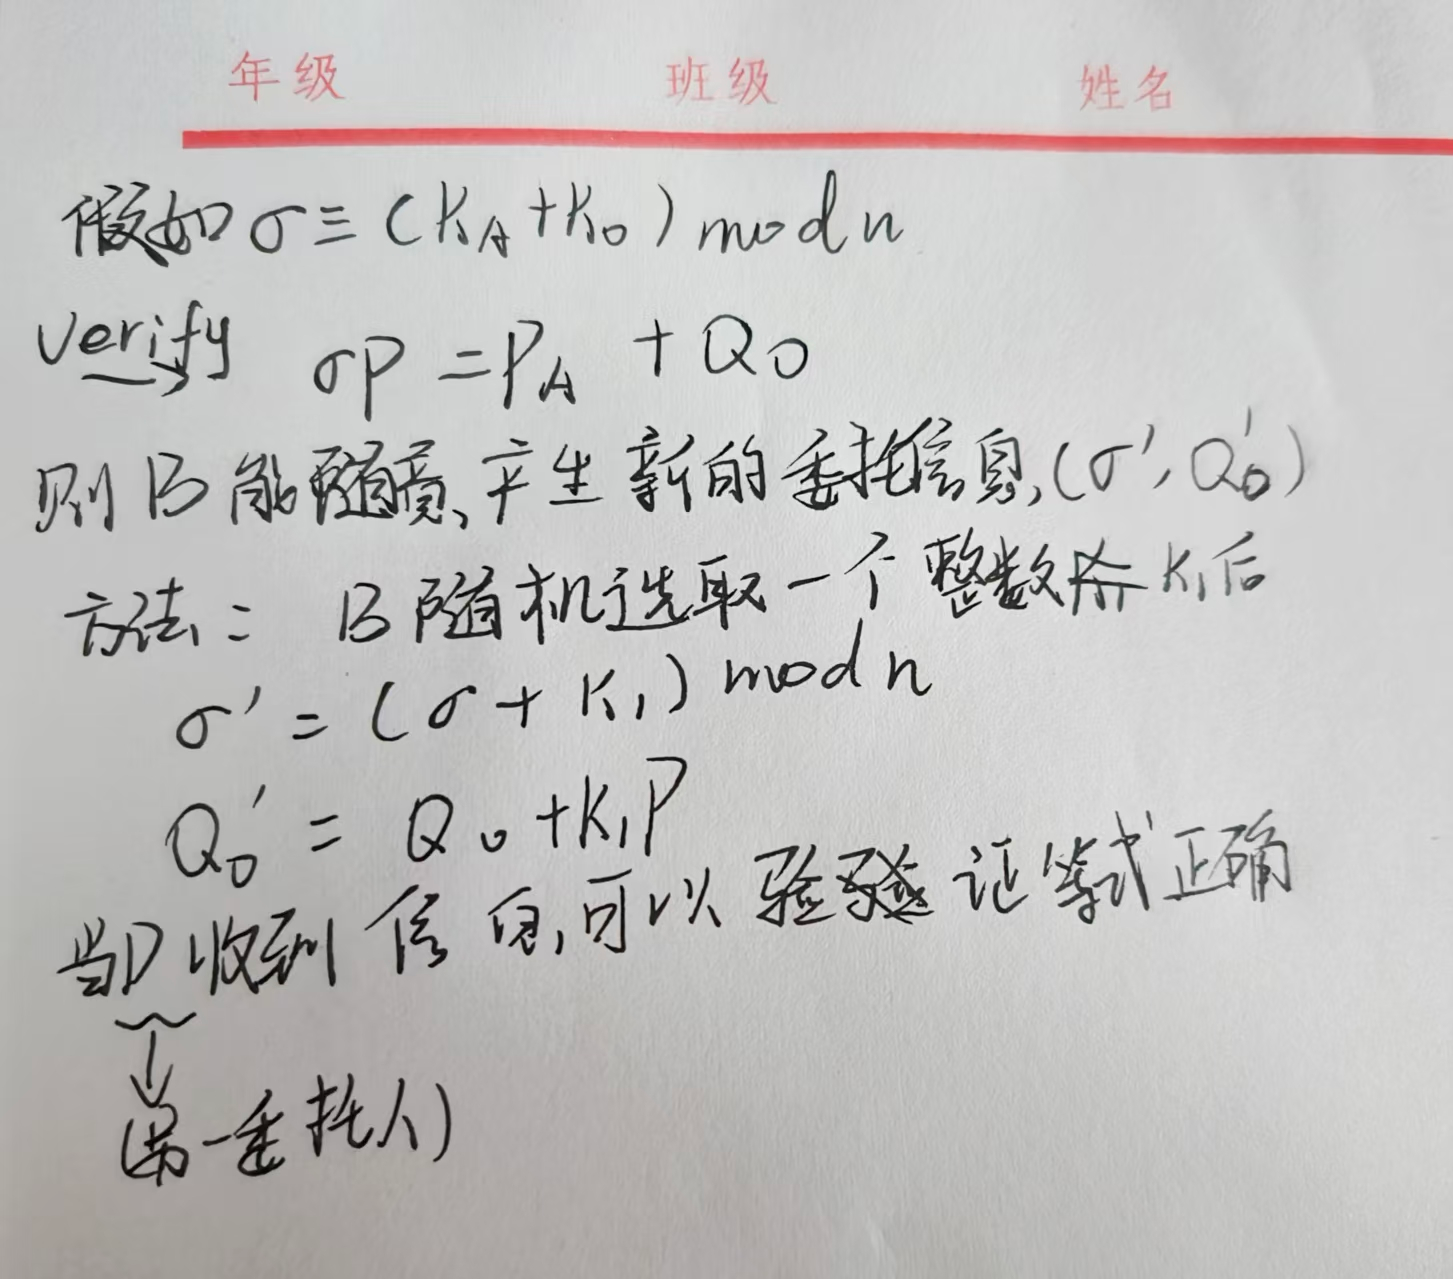 年级 班级 姓名
假如 σ ≡ (K_A + K_0) mod n
verify σP = P_A + Q_0
则 B 能随意产生新的委托信息,(σ', Q_0')
方法: B 随机选取一个整数 K_1后
σ' = (σ + K_1) mod n
Q_0' = Q_0 + K_1P
当D收到信息,可以验证等式正确
(另一委托人)